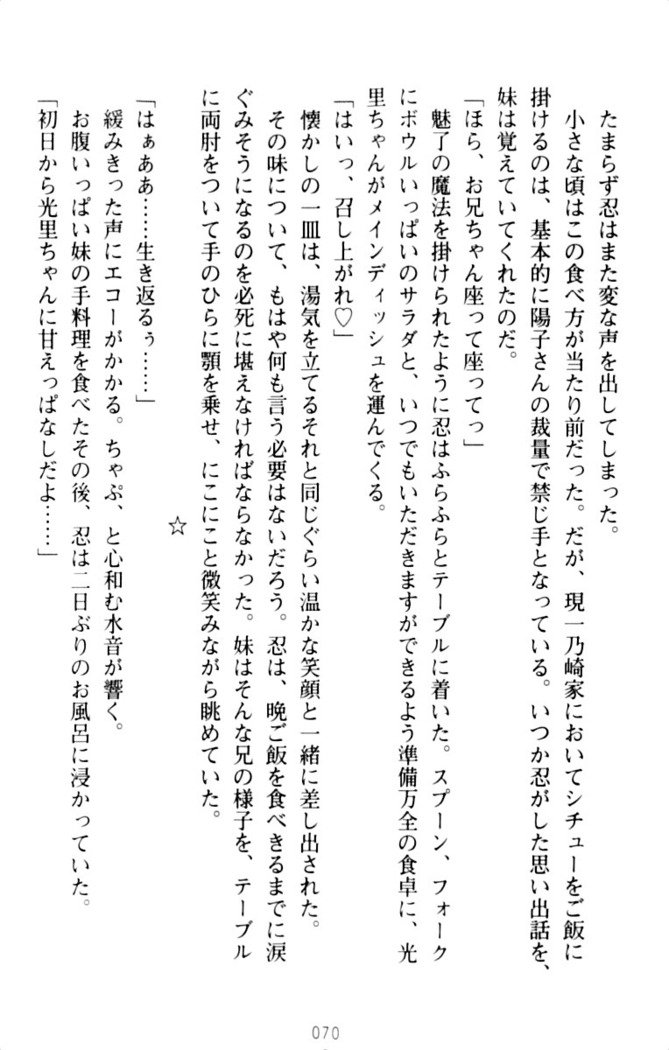 たまらず忍はまた変な声を出してしまった。
小さな頃はこの食べ方が当たり前だった。だが、現一乃崎家においてシチューをご飯に
掛けるのは、基本的に陽子さんの裁量で禁じ手となっている。いつか忍がした思い出話を、
妹は覚えていてくれたのだ。
「ほら、お兄ちゃん座って座ってっ」
魅了の魔法を掛けられたように忍はふらふらとテーブルに着いた。スプーン、フォーク
にボウルいっぱいのサラダと、いつでもいただきますができるよう準備万全の食卓に、光
里ちゃんがメインディッシュを運んでくる。
「はいっ、召し上がれ♡」
懐かしの一皿は、湯気を立てるそれと同じぐらい温かな笑顔と一緒に差し出された。
その味について、もはや何も言う必要はないだろう。忍は、晩ご飯を食べきるまでに涙
ぐみそうになるのを必死に堪えなければならなかった。妹はそんな兄の様子を、テーブル
に両肘をついて手のひらに顎を乗せ、にこにこと微笑みながら眺めていた。
☆
「はぁああ……生き返るぅ……」
緩みきった声にエコーがかかる。ちゃぷ、と心和む水音が響く。
お腹いっぱい妹の手料理を食べたその後、忍は二日ぶりのお風呂に浸かっていた。
「初日から光里ちゃんに甘えっぱなしだよ……」
070